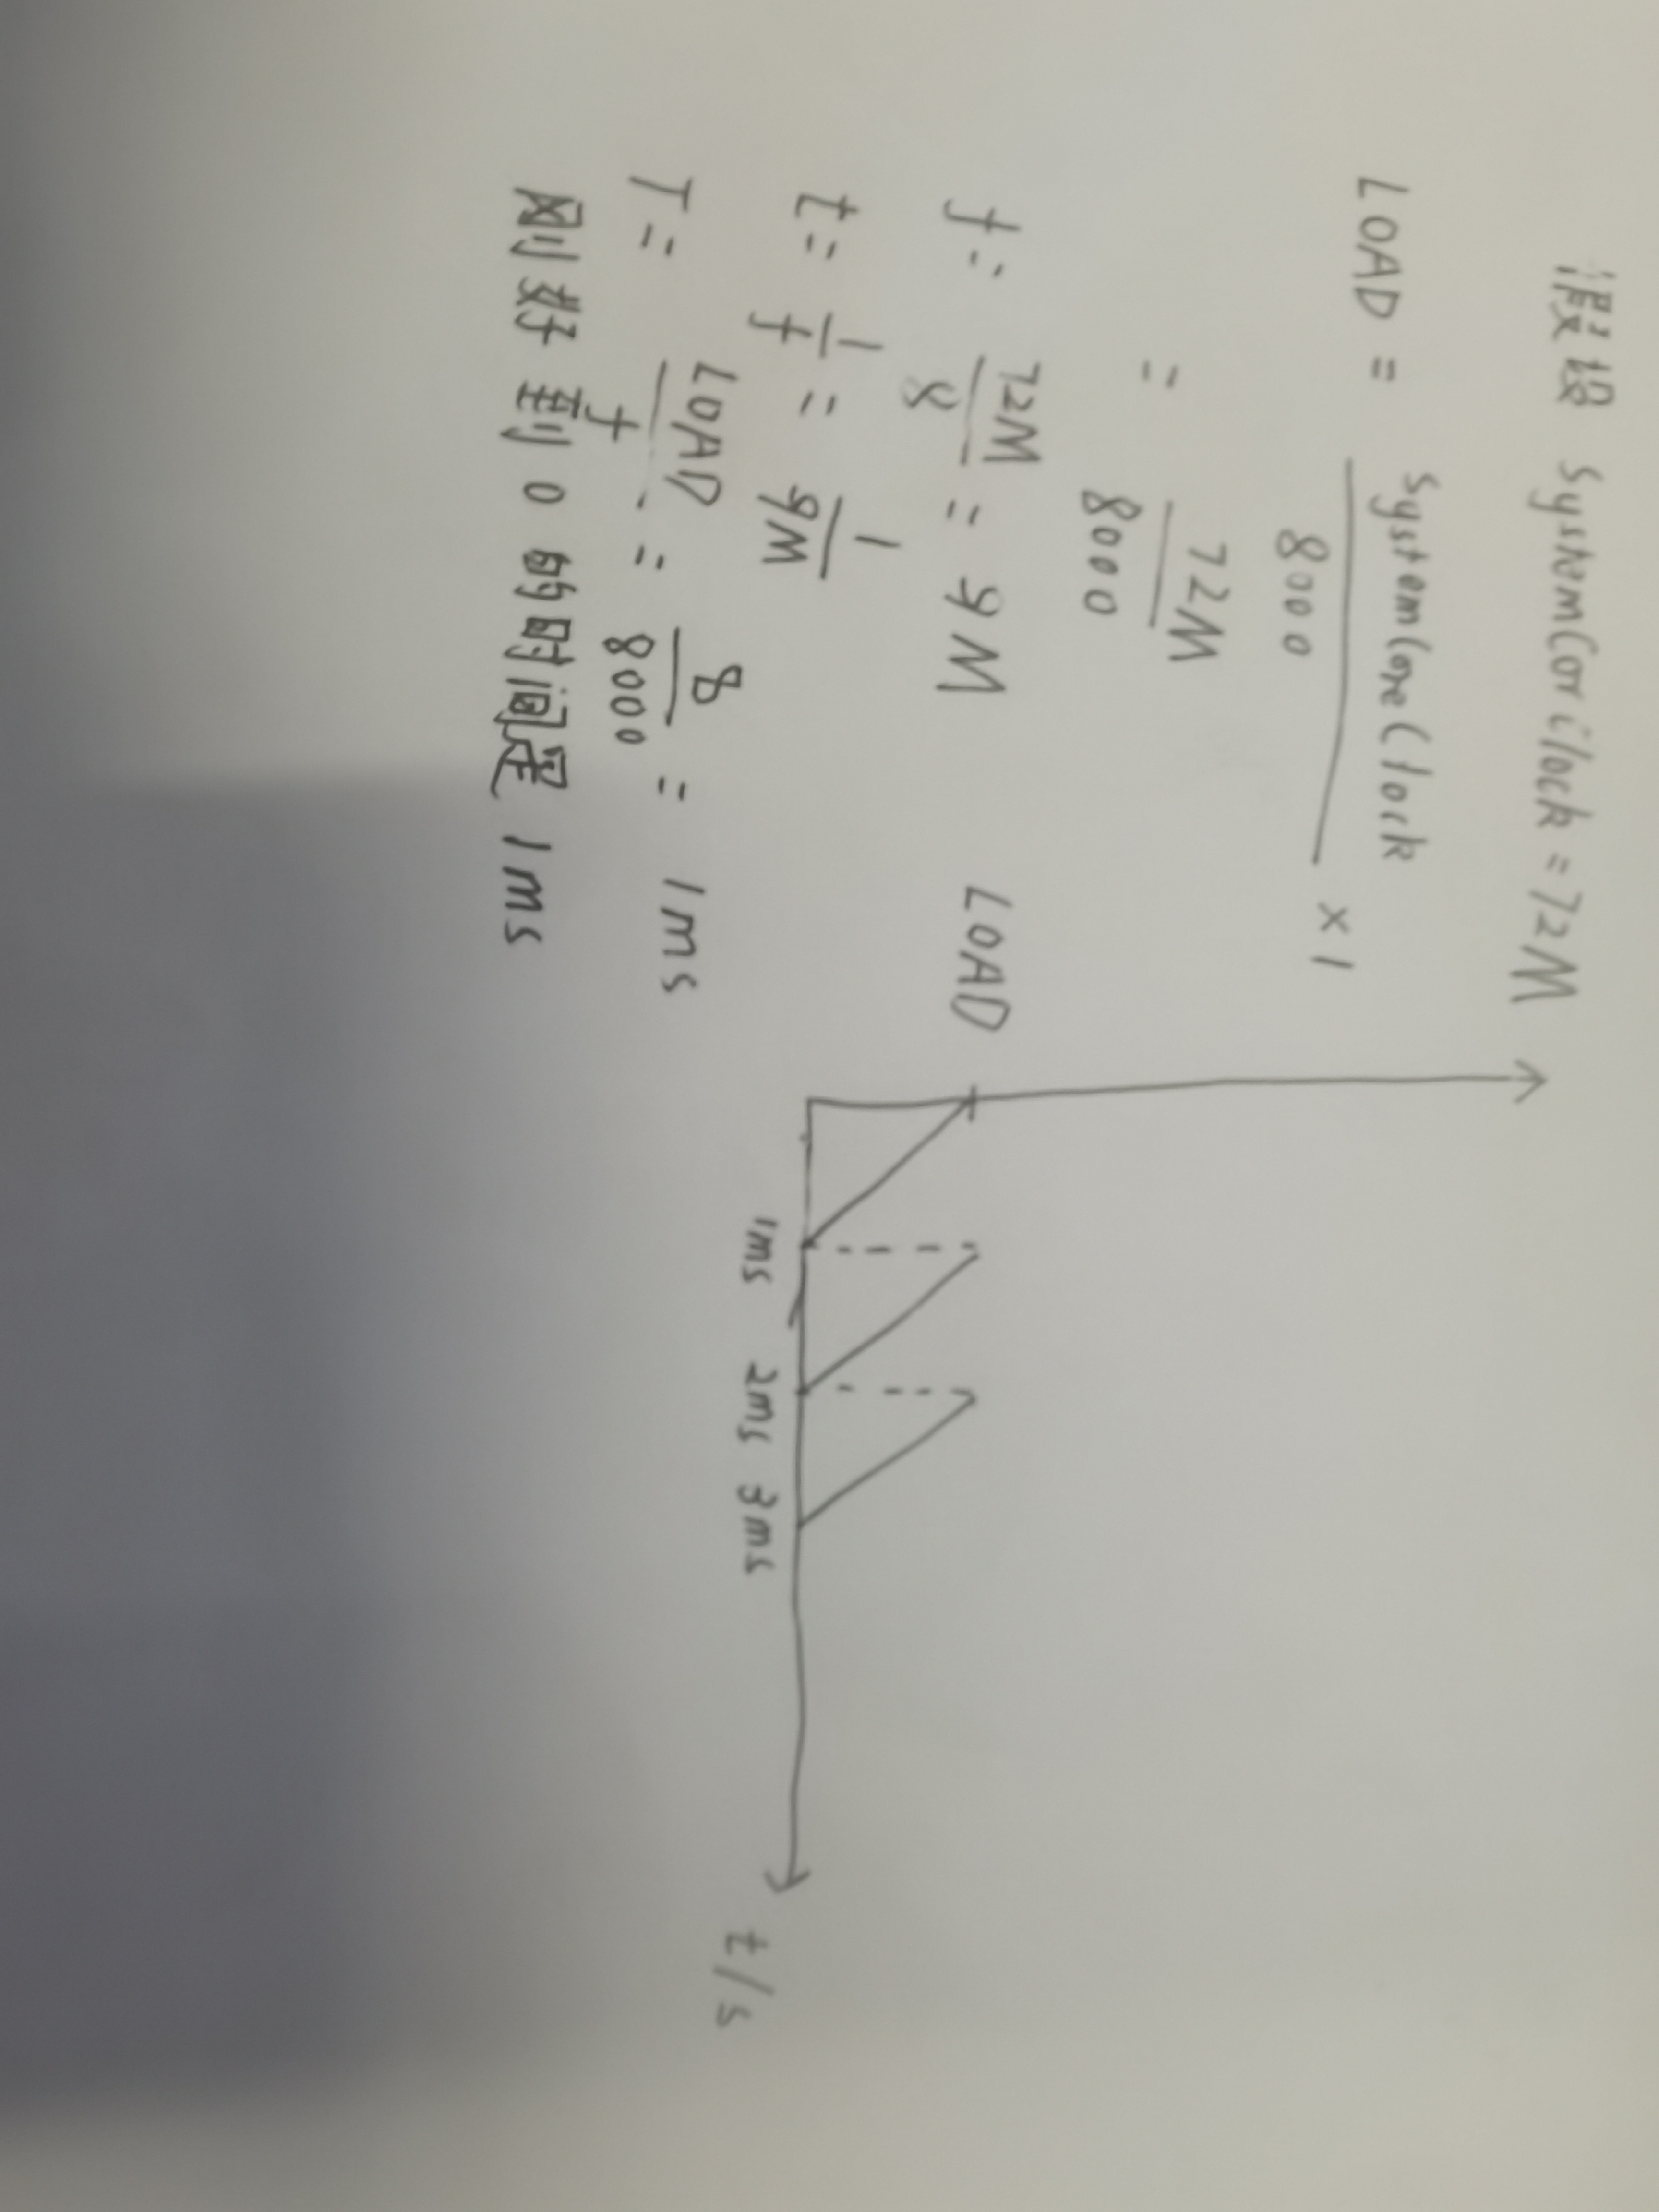 假设 SystemCorClock = 72M
LOAD = SystemCoreClock / 8000 × 1
= 72M / 8000
f = 72M / 8 = 9M
t = 1 / f = 1 / 9M
T = LOAD / f = 8 / 8000 = 1ms
刚好到0的时间是1ms
LOAD
1ms 2ms 3ms
t/s